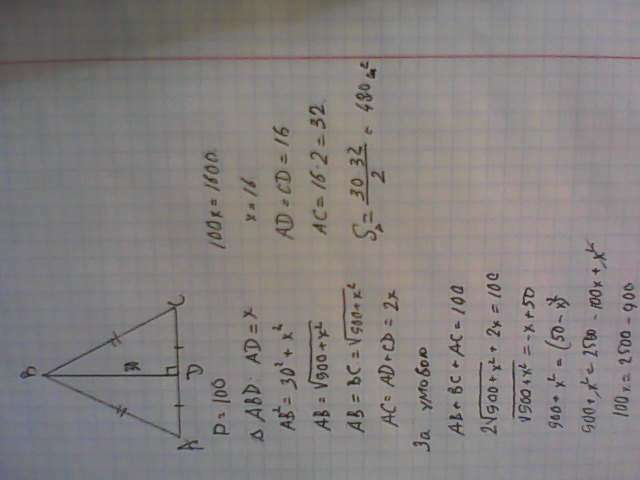 B
30
A D C
P = 100
Δ ABD. AD = x
AB² = 30² + x²
AB = √900 + x²
AB = BC = √900 + x²
AC = AD + CD = 2x
За умовою
AB + BC + AC = 100
2√900 + x² + 2x = 100
√900 + x² = -x + 50
900 + x² = (50 - x)²
900 + x² = 2500 - 100x + x²
100x = 2500 - 900
100x = 1600
x = 16
AD = CD = 16
AC = 16 · 2 = 32
S△ = 30 32 / 2 = 480 м²